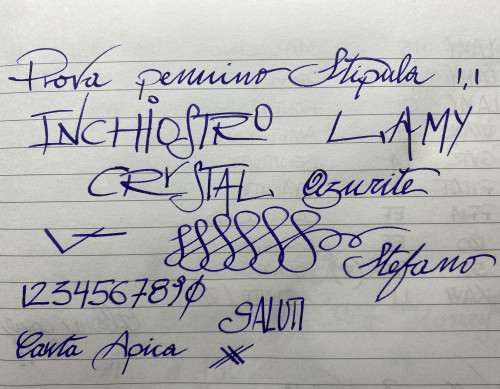 Prova pennino Stipula !,!
INCHIOSTRO LAMY
CRYSTAL. azurite
Stefano
1234567890
SALUTI
Carta Apica